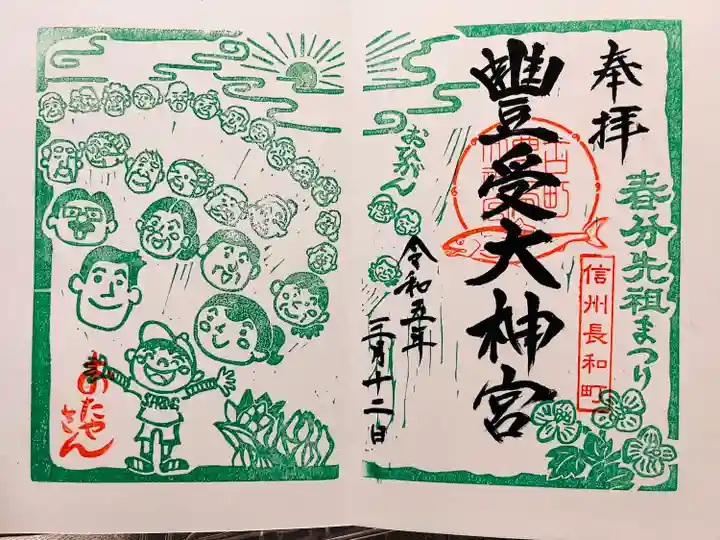 奉拝
春分先祖まつり
信州長和町
豐受大神宮
令和五年
三月十二日
おひがん
おたやさん
SPRING